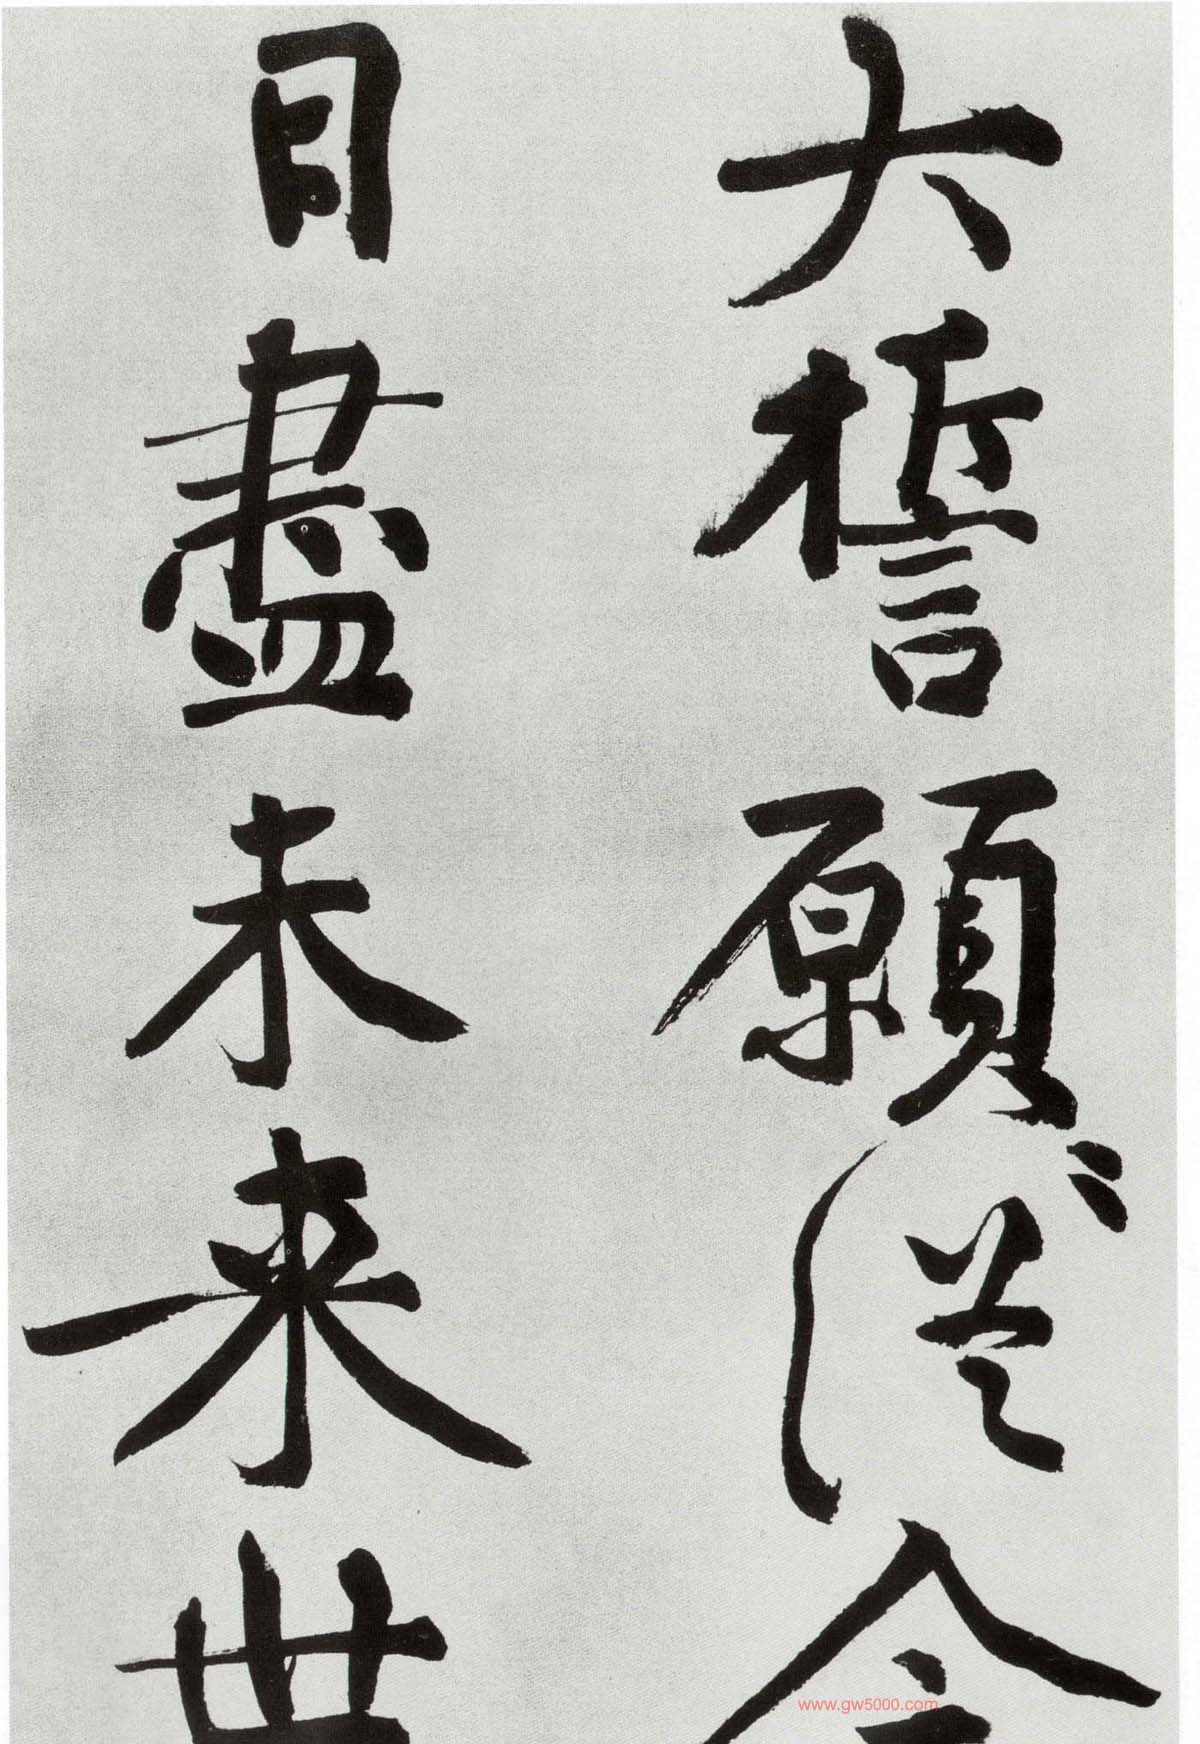 大誓願從今
日盡未来世
www.gw5000.com